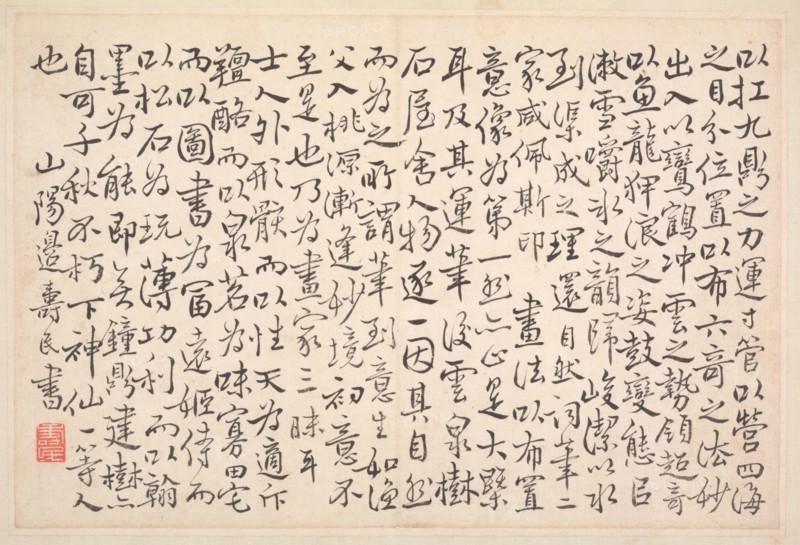 以扛九鼎之力運寸管以營四海
之目分位置以布六奇之法妙
出入以鸞鶴冲雲之勢領超奇
以魚龍狎浪之姿鼓變態
漱雪嚼冰之韻歸峻潔以水
到渠成之理還自然詞筆二
家咸佩斯印 畫法以布置
意像為第一然亦止是大槩
耳及其運筆後雲泉樹
石屋舍人物逐一因其自然
而為之所謂筆到意生如漁
父入桃源漸逢妙境初意不
至是也乃為畫家三昧耳
士人外形骸而以性天為適斥
羶酪而以泉茗為味寡田宅
而以圖書為富遠姬侍而
以松石為玩薄功利而以翰
墨為能即無鐘鼎建樹亦
自可千秋不朽下神仙一等人
也 山陽邊壽民書
壽民